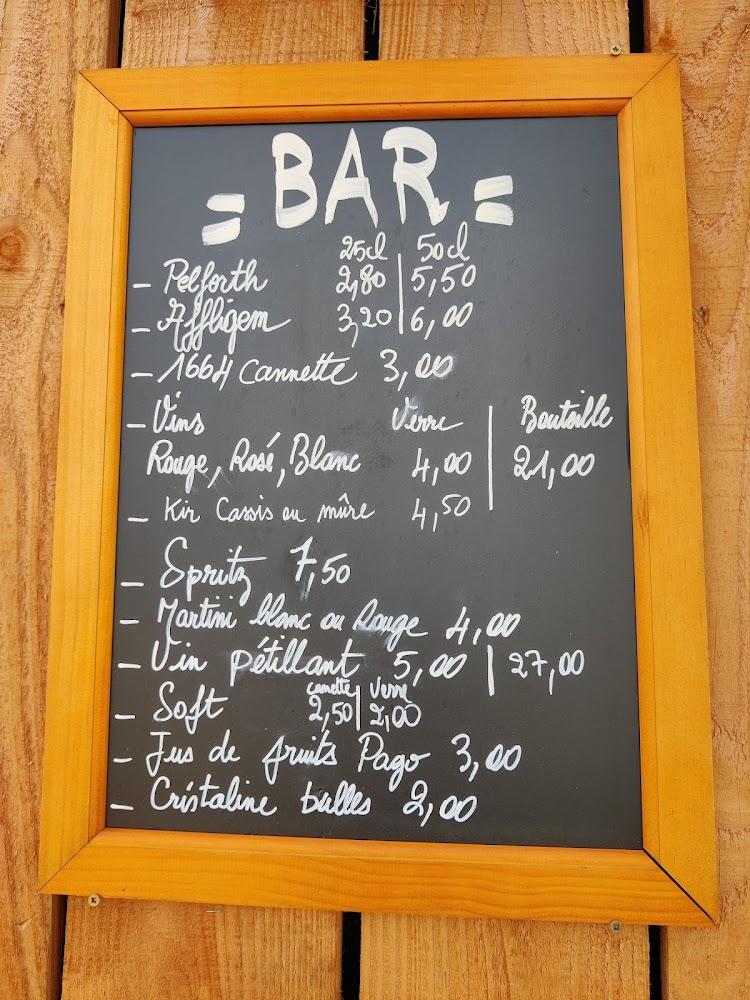 = BAR =
25cl | 50cl
- Pelforth 2,80 | 5,50
- Affligem 3,20 | 6,00
- 1664 Cannette 3,00
- Vins Verre | Bouteille
Rouge, Rosé, Blanc 4,00 | 21,00
- Kir Cassis ou mûre 4,50
- Spritz 7,50
- Martini blanc ou Rouge 4,00
- Vin pétillant 5,00 | 27,00
cannette | Verre
- Soft 2,50 | 2,00
- Jus de fruits Pago 3,00
- Cristaline bulles 2,00